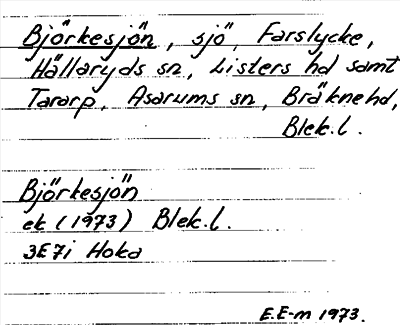 Björkesjön, sjö, Farslycke,
Hällaryds sn, Listers hd samt
Tararp, Asarums sn, Bräkne hd,
Blek. l.
Björkesjön
ek (1973) Blek. l.
3E7i Hoka
E.E-m 1973.